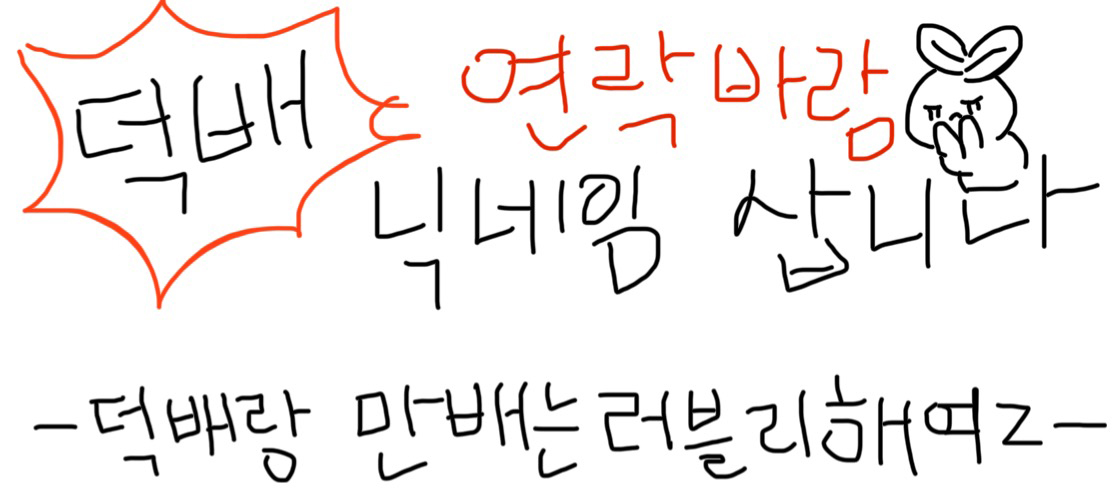 덕배 연락바람
닉네임 삽니다
-덕배랑 만배는 러블리해여z-